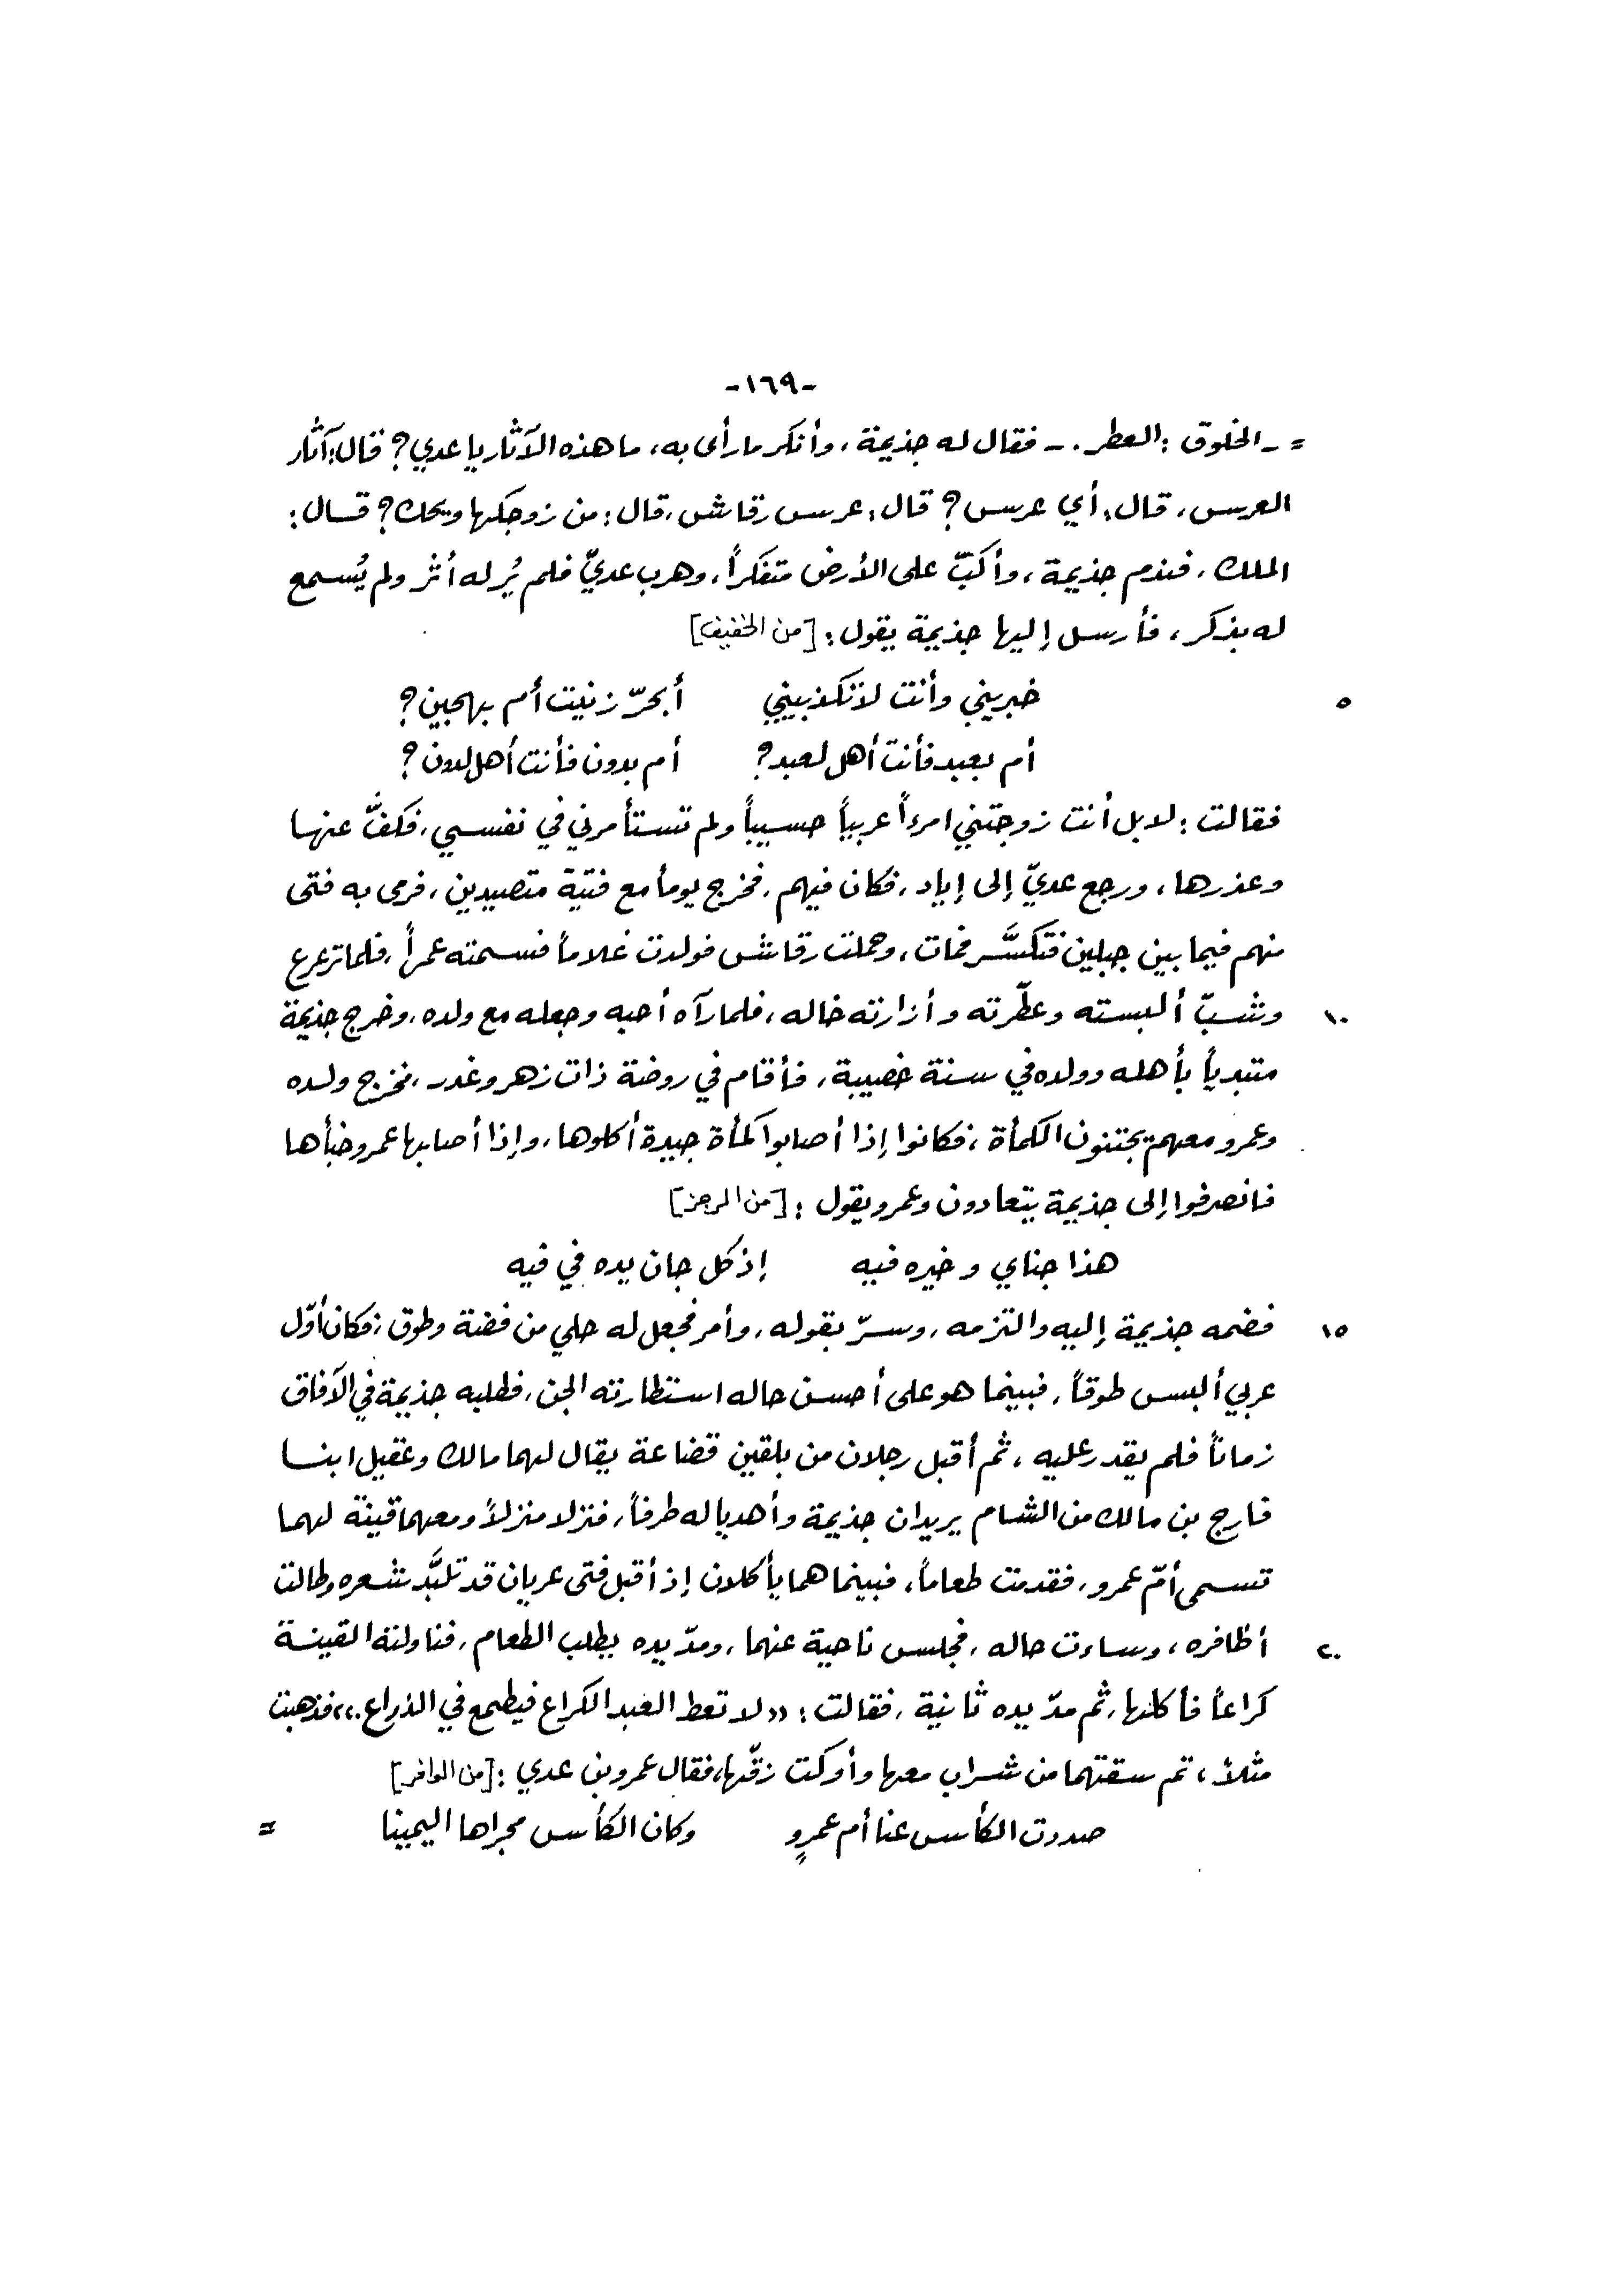 -١٦٩-
= - الخلوق : العطر . - فقال له جذيمة ، وأنكر ما رأى به ، ما هذه الآثار يا عدي ؟ قال : آثار
العرس ، قال : أي عرس ؟ قال : عرس رقاش ، قال : من زوجكها ويحك ؟ قال :
الملك ، فندم جذيمة ، وأكبّ على الأرض متفكراً ، وهرب عديّ فلم يُر له أثر ولم يُسمع
له بذكر ، فأرسل إليها جذيمة يقول : [من الخفيف]
٥ خبريني وأنت لا تكذبيني أبحرّ زنيت أم بهجين ؟
أم بعبد فأنت أهل لعبد ؟ أم بدون فأنت أهل لدون ؟
فقالت : لا بل أنت زوجتني امرءاً عربياً حسيباً ولم تستأمرني في نفسي ، فكفَّ عنها
وعذرها ، ورجع عديّ إلى إياد ، فكان فيهم ، فخرج يوماً مع فتية متصيدين ، فرمى به فتى
منهم فيما بين جبلين فتكسَّر فمات ، وحملت رقاش فولدت غلاماً فسمته عمراً ، فلما ترعرع
١٠ وشبّ ألبسته وعطّرته وأزارته خاله ، فلما رآه أحبه وجعله مع ولده ، وخرج جذيمة
متبدياً بأهله وولده في سنة خصيبة ، فأقام في روضة ذات زهر وغدر ، فخرج ولده
وعمرو معهم يجتنون الكمأة ، فكانوا إذا أصابوا كمأة جيدة أكلوها ، وإذا أصابها عمرو خبأها
فانصرفوا إلى جذيمة يتعادون وعمرو يقول : [من الرجز]
هذا جناي وخيره فيه إذ كل جان يده في فيه
١٥ فضمه جذيمة إليه والتزمه ، وسرّ بقوله ، وأمر فجعل له حلي من فضة وطوق ، فكان أوّل
عربي ألبس طوقاً ، فبينما هو على أحسن حاله استطارته الجن ، فطلبه جذيمة في الآفاق
زماناً فلم يقدر عليه ، ثم أقبل رجلان من بلقين قضاعة يقال لهما مالك وعقيل ابنا
فارج بن مالك من الشام يريدان جذيمة وأهديا له طرفاً ، فنزلا منزلاً ومعهما قينة لهما
تسمى أمّ عمرو ، فقدمت طعاماً ، فبينما هما يأكلان إذ أقبل فتى عريان قد تلبَّد شعره وطالت
٢٠ أظافره ، وساءت حاله ، فجلس ناحية عنهما ، ومدّ يده يطلب الطعام ، فناولته القينة
كراعاً فأكلها ، ثم مدّ يده ثانية ، فقالت : «لا تعط العبد الكراع فيطمع في الذراع .» فذهبت
مثلاً ، تم سقتهما من شراب معها وأوكت زقّها ، فقال عمرو بن عدي : [من الوافر]
صددت الكأس عنا أم عمرٍو وكان الكأس مجراها اليمينا =